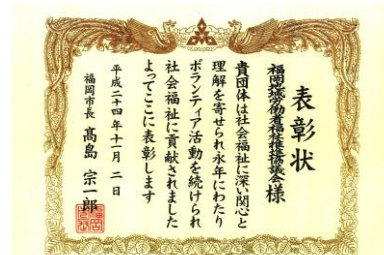 表彰状
福岡地域労働者福祉推進協議会様
貴団体は社会福祉に深い関心と
理解を寄せられ永年にわたり
ボランティア活動を続けられ
社会福祉に貢献されました
よってここに表彰します
平成二十四年十一月二日
福岡市長 髙島宗一郎